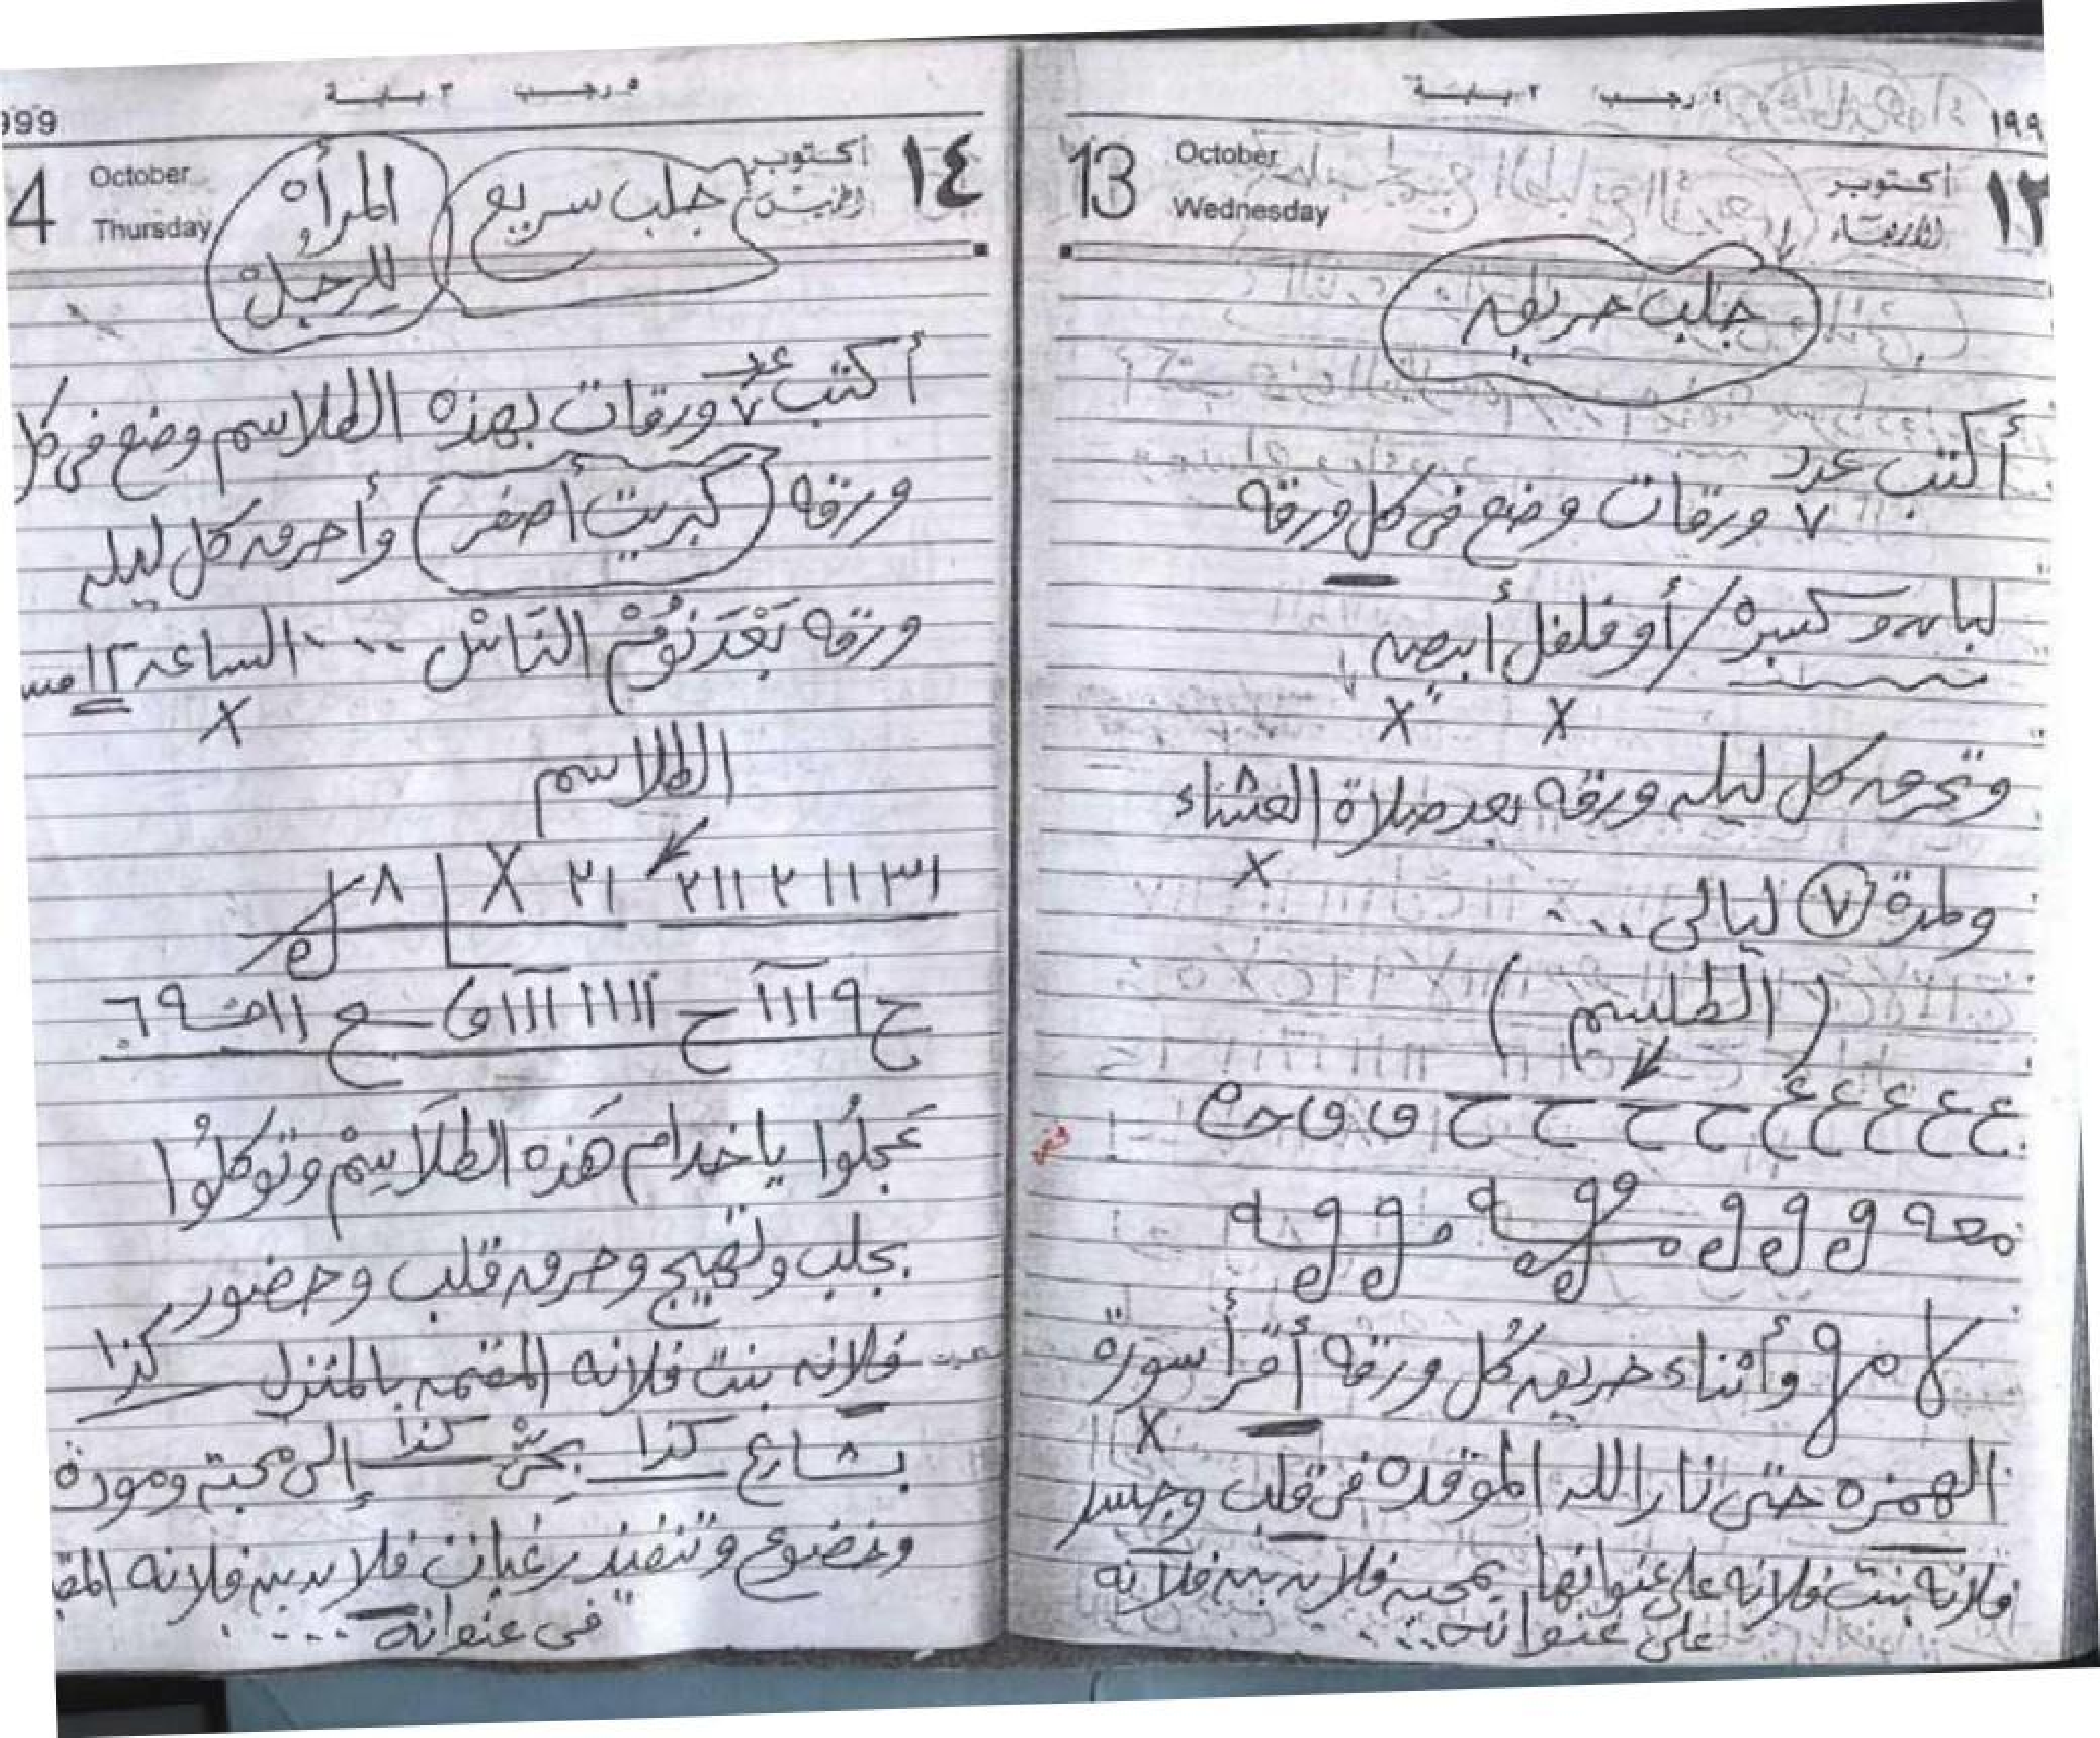 ٤ رجب ٢ بابة
١٩٩
13 October أكتوبر ١٣
Wednesday الأربعاء
جلب حريق
أكتب عدد
٧ ورقات وضع فى كل ورقه
لبان وكسبره / أو فلفل أبيض
X X
وتحرق كل ليله ورقه بعد صلاة العشاء
X
ولمدة ٧ ليالى ...
( الطلسم )
ع ع ع ع ع ع ح ح ح ح ق ق ح
وأثناء حريق كل ورقه أقرأ سورة
X
الهمزه حتى نار الله الموقده فى قلب وجسد
فلانه بنت فلانه على عنوانها بمحبة فلان بن فلانه
على عنوانه ...
٥ رجب ٣ بابة
999
4 October أكتوبر ١٤
Thursday الخميس
جلب سريع
المرأه
للرجل
أكتب عدد ٧ ورقات بهذه الطلاسم وضع فى كل
ورقه ( كبريت أصفر ) وأحرق كل ليله
ورقه بَعْدَ نَوْمْ النَاسْ .... الساعه ١٢
X
الطلاسم
١٣ ١١ ٢ ١١٢ ٢١ X ٨
ح ٩ ١١١ ح ١١١١ ١١١ ق ع ١١ ٦٩
عَجِلُوا ياخدام هَذه الطلَاسِمْ وتوكلُوا
بجلب وتهيج وحرق قلب وحضور
فلانه بنت فلانه المقيمه بالمنزل كذا
بشارع كذا بحىْ كذا إلى محبة ومودة
وخضوع وتنفيذ رغبات فلان بن فلانه
فى عنوانه ....